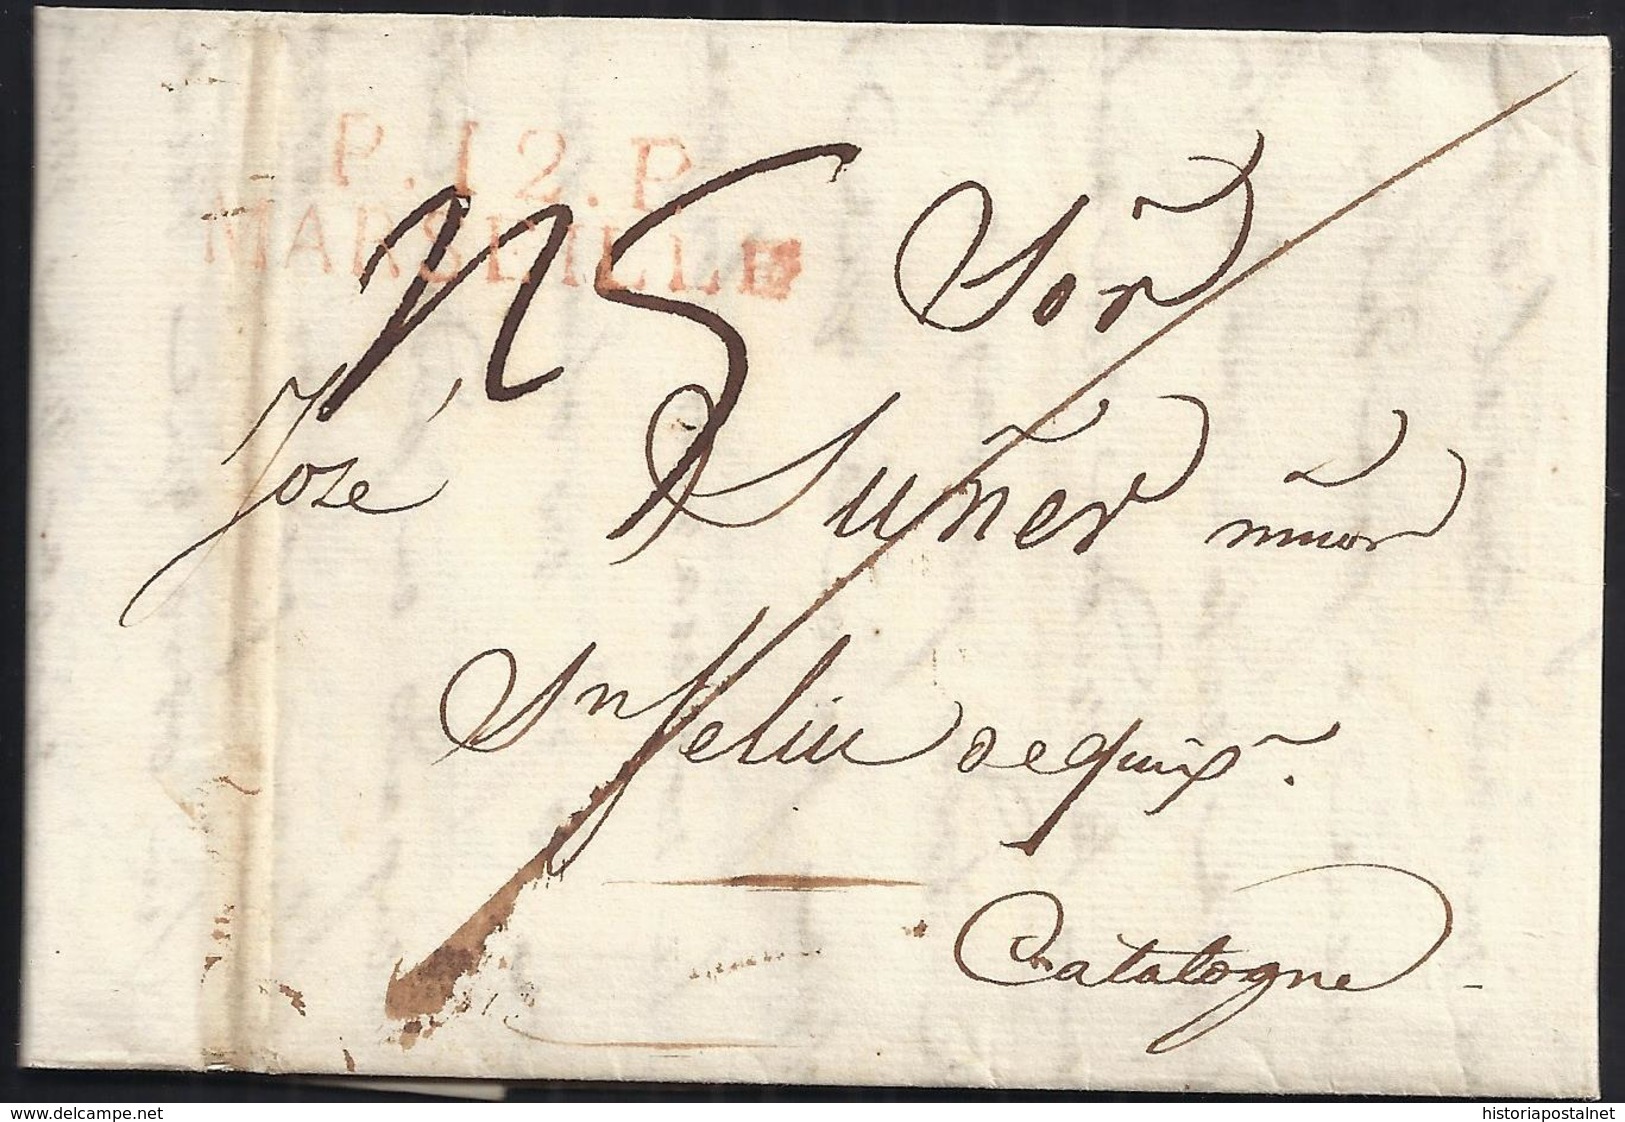 P.12.P
MARSEILLE
Sor
José Suñer
Sn Feliu de Quixs.
Catalogne
www.delcampe.net
historiapostalnet